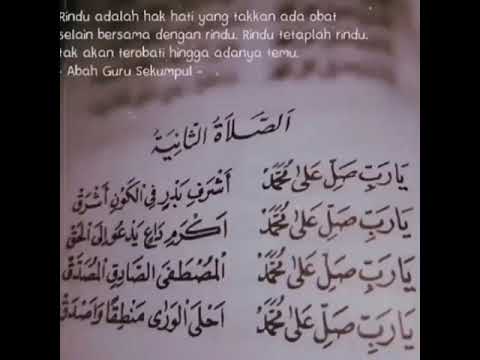 Rindu adalah hak hati yang takkan ada obat
selain bersama dengan rindu. Rindu tetaplah rindu.
tak akan terobati hingga adanya temu.
- Abah Guru Sekumpul -
اَلصَّلَاةُ الثَّانِيَةُ
يَارَبِّ صَلِّ عَلٰى مُحَمَّدْ اَشْرَفِ بَدْرٍ فِي الْكَوْنِ اَشْرَقْ
يَارَبِّ صَلِّ عَلٰى مُحَمَّدْ اَكْرَمِ دَاعٍ يَدْعُو اِلَى الْحَقْ
يَارَبِّ صَلِّ عَلٰى مُحَمَّدْ اَلْمُصْطَفَى الصَّادِقِ الْمُصَدَّقْ
يَارَبِّ صَلِّ عَلٰى مُحَمَّدْ اَحْلَى الْوَرٰى مَنْطِقًا وَاَصْدَقْ